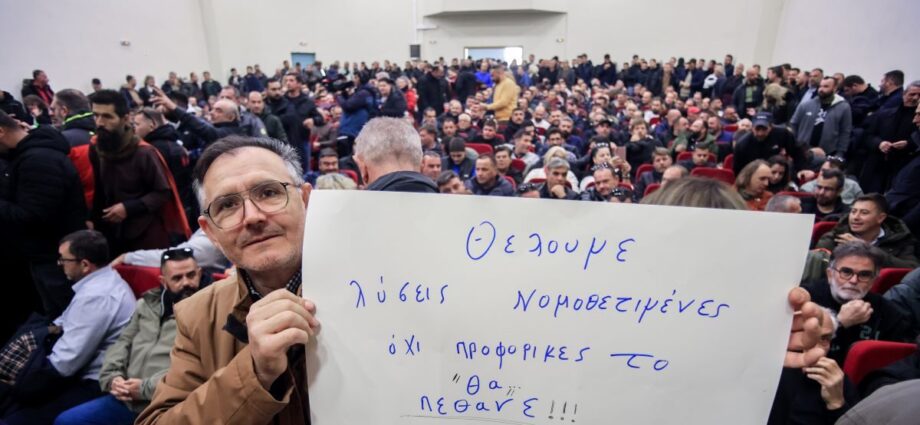 Θελουμε
λύσεις νομοθετιμένες
όχι προφορικες το
"θα"
πεθανε!!!